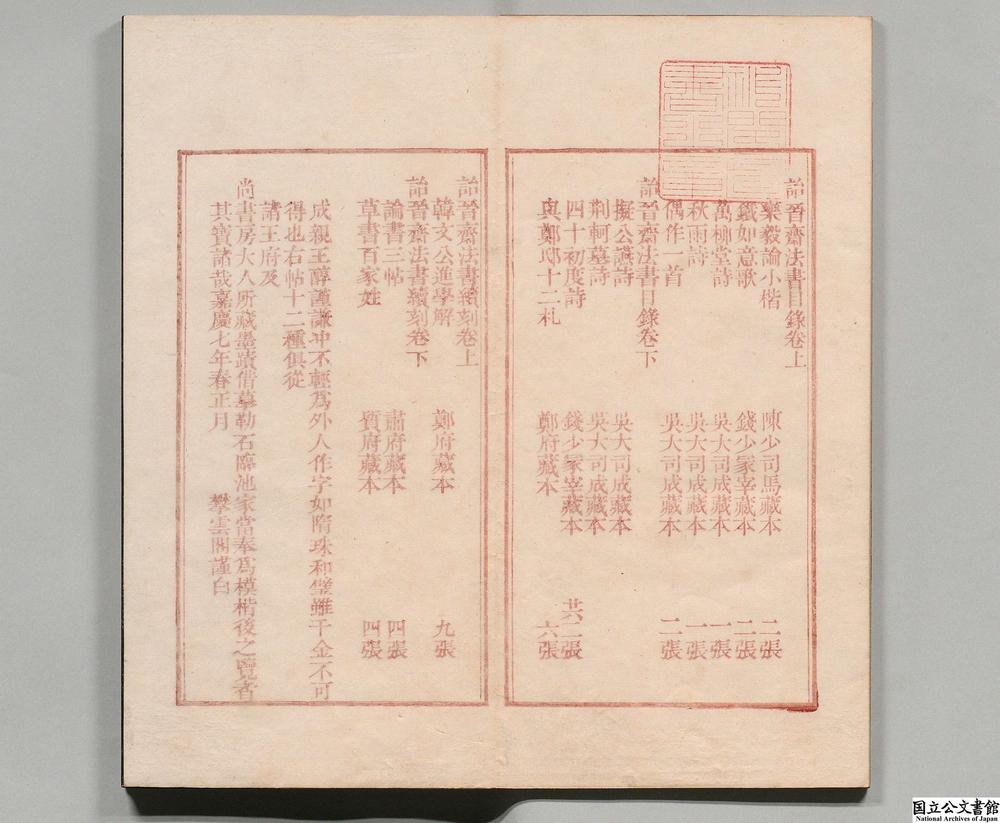 詒晉齋法書目錄卷上
樂毅論小楷 陳少司馬藏本 二張
鐵如意歌 錢少冢宰藏本 二張
萬柳堂詩 吳大司成藏本 一張
秋雨詩 吳大司成藏本 一張
偶作一首 吳大司成藏本 二張
詒晉齋法書目錄卷下
擬公讌詩 吳大司成藏本
荆軻墓詩 吳大司成藏本
四十初度詩 錢少冢宰藏本 共二張
與鄭邸十二札 鄭府藏本 六張
詒晉齋法書續刻卷上
韓文公進學解 鄭府藏本 九張
詒晉齋法書續刻卷下
論書三帖 肅府藏本 四張
草書百家姓 質府藏本 四張
成親王醇謹謙冲不輕爲外人作字如隋珠和璧雖千金不可
得也右帖十二種俱從
諸王府及
尚書房大人所藏墨蹟借摹勒石臨池家當奉爲模楷後之覽者
其寶諸哉嘉慶七年春正月 攀雲閣謹白
国立公文書館
National Archives of Japan